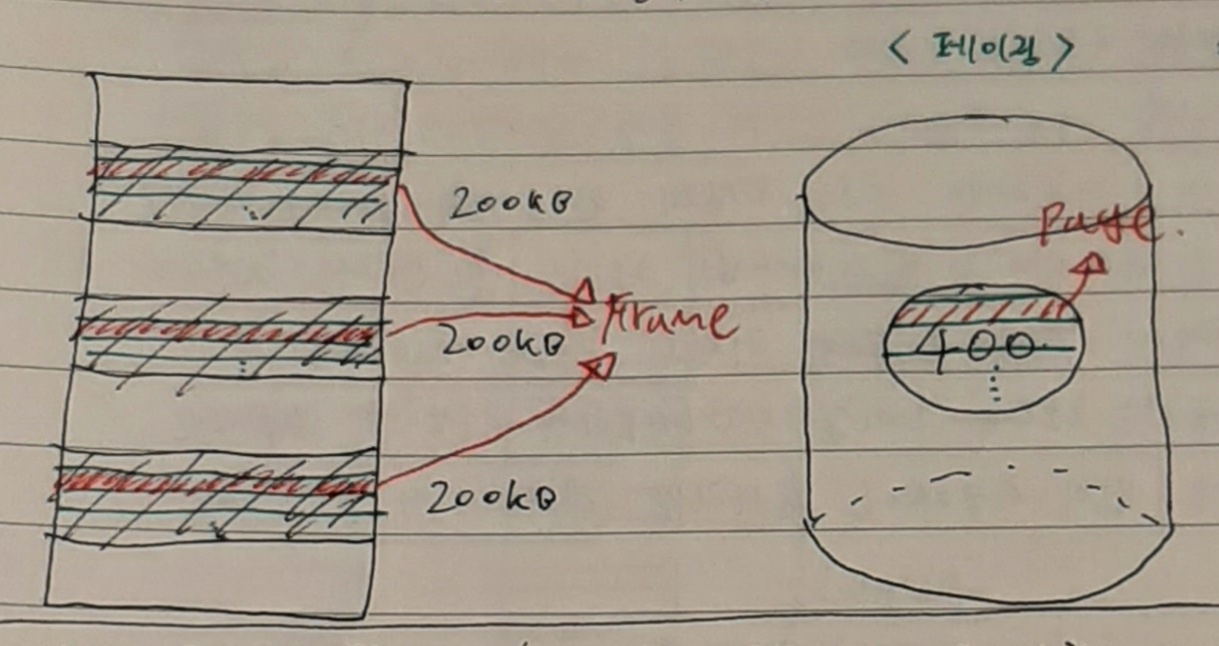 < 페이징 >
200KB
Page.
Frame
200KB
400
200KB